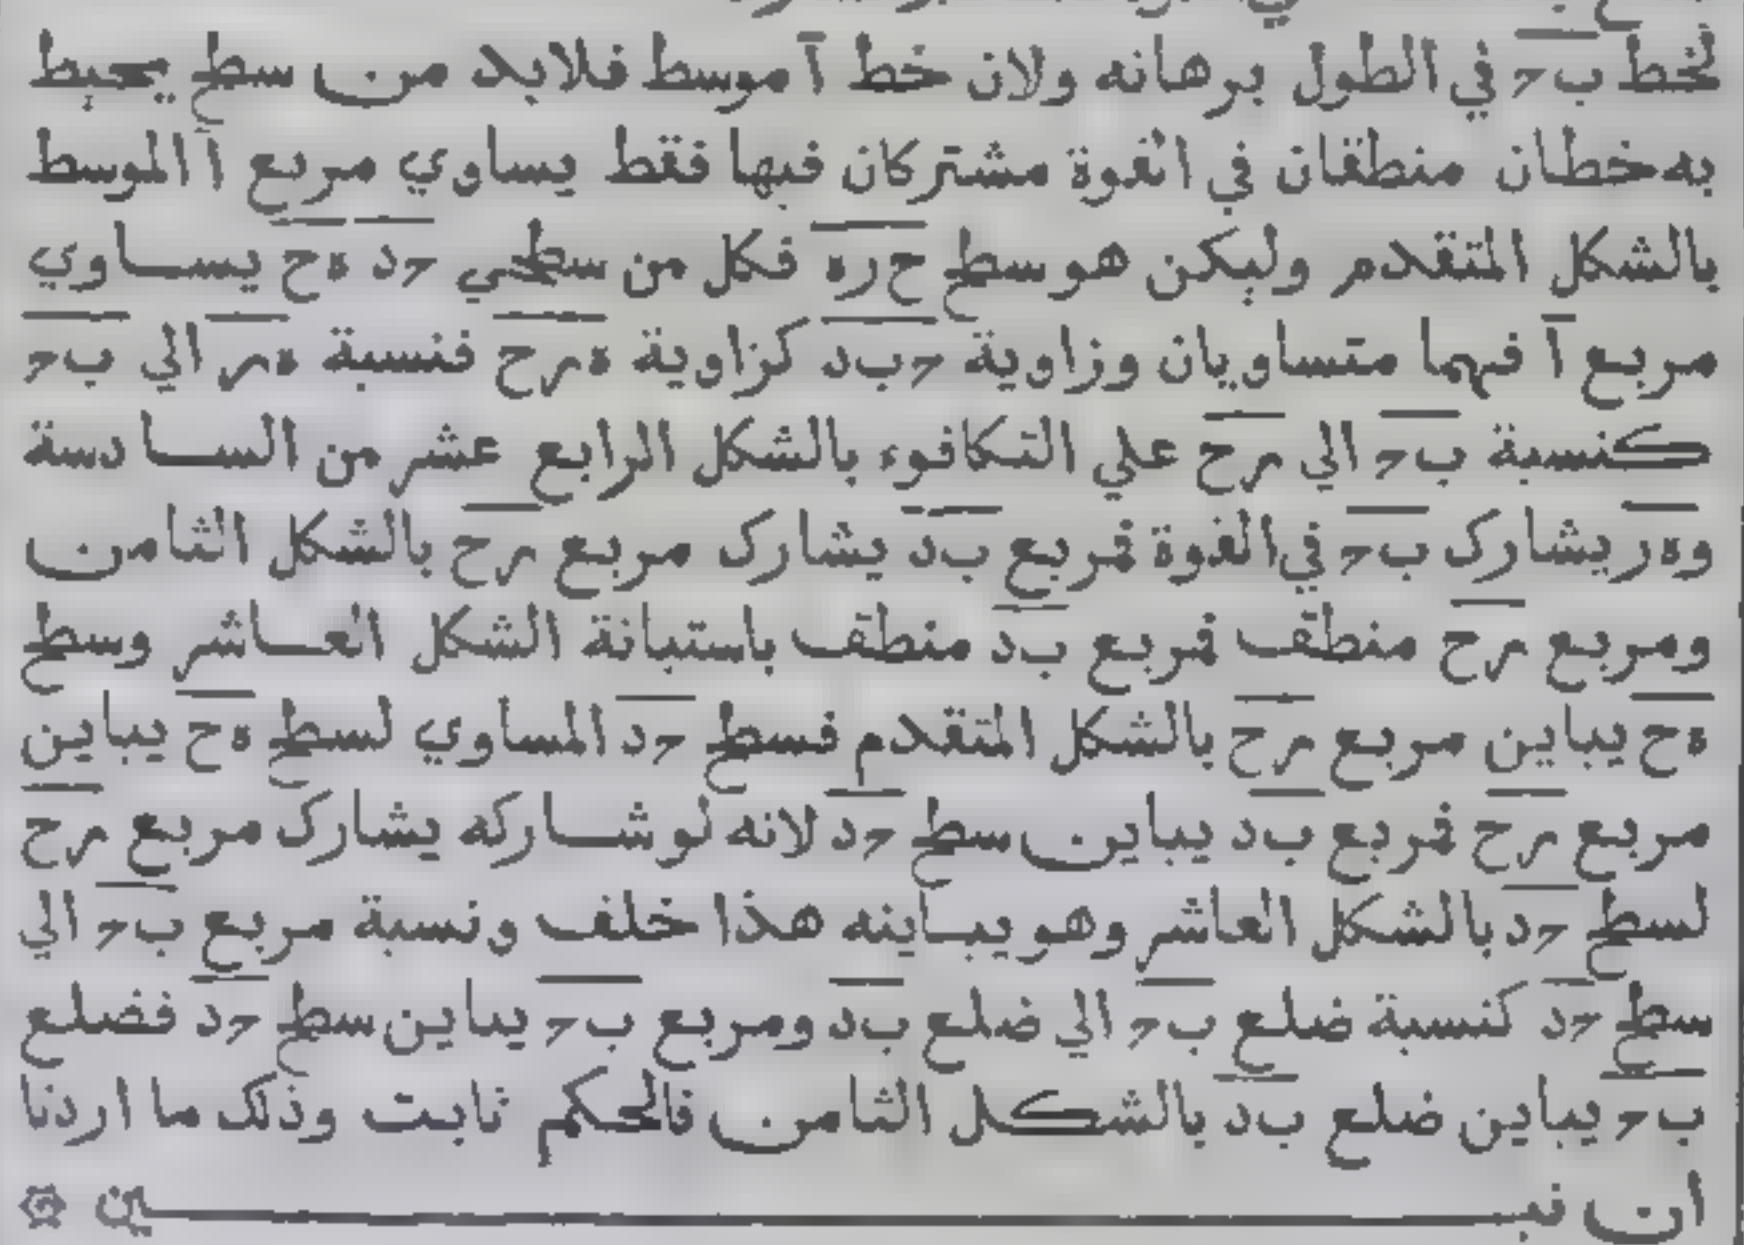 لخط ب‍ح في الطول برهانه ولان خط آ موسط فلابد من سطح يحيط
به خطان منطقان في القوة مشتركان فيها فقط يساوي مربع آ الموسط
بالشكل المتقدم وليكن هو سطح ح ر ه فكل من سطحي حد ه‍ح يساوي
مربع آ فهما متساويان وزاوية ح‍ب‍د كزاوية ه‍رح فنسبة ه‍ر الي ب‍ح
كنسبة ب‍ح الي رح علي التكافوء بالشكل الرابع عشر من السادسة
وه‍ر يشارك ب‍ح في القوة فمربع ب‍د يشارك مربع رح بالشكل الثامن
ومربع رح منطق فمربع ب‍د منطق باستبانة الشكل العاشر وسطح
ه‍ح يباين مربع رح بالشكل المتقدم فسطح حد المساوي لسطح ه‍ح يباين
مربع رح فمربع ب‍د يباين سطح حد لانه لو شاركه يشارك مربع رح
لسطح حد بالشكل العاشر وهو يباينه هذا خلف ونسبة مربع ب‍ح الي
سطح حد كنسبة ضلع ب‍ح الي ضلع ب‍د ومربع ب‍ح يباين سطح حد فضلع
ب‍ح يباين ضلع ب‍د بالشكل الثامن فالحكم ثابت وذلك ما اردنا
ان نبين